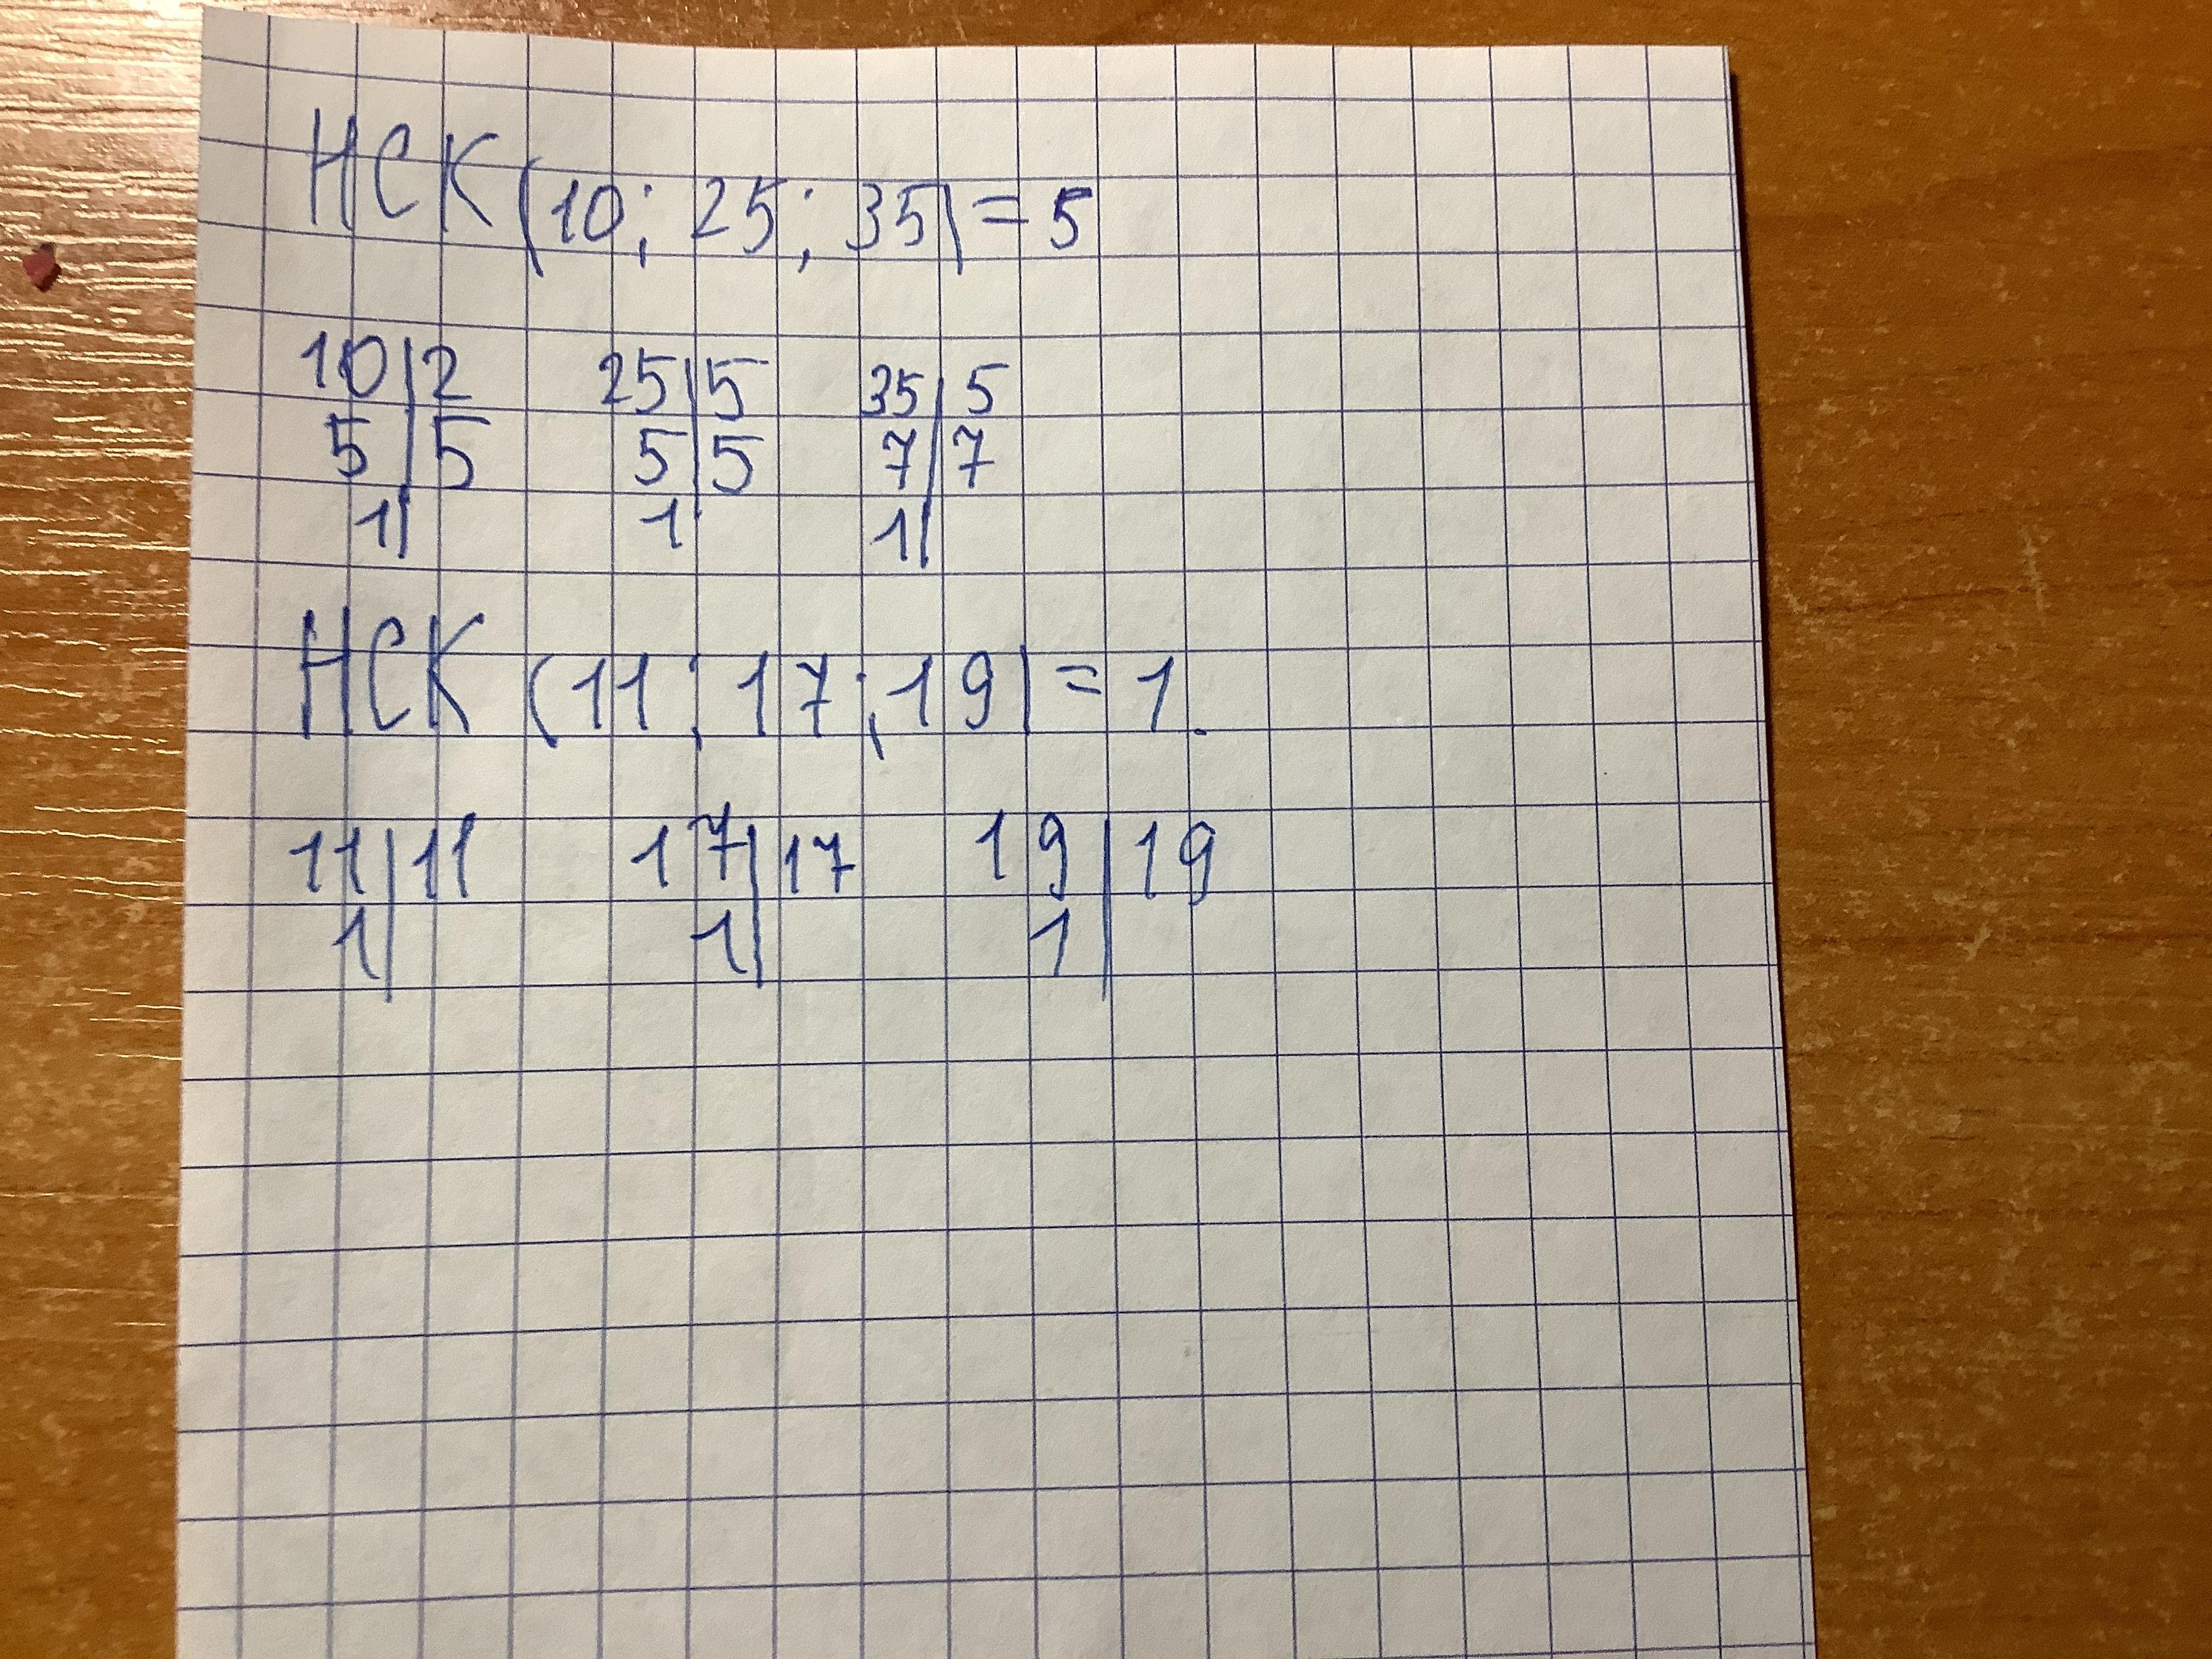 НСК (10; 25; 35) = 5
10|2 25|5 35|5
5|5 5|5 7|7
1| 1| 1|
НСК (11; 17; 19) = 1.
11|11 17|17 19|19
1| 1| 1|